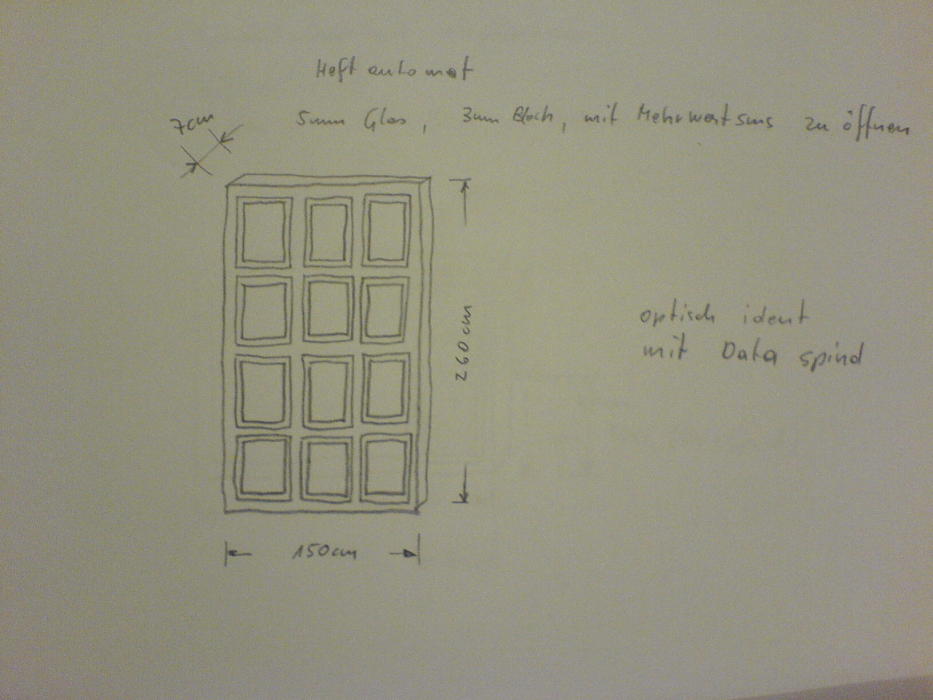 Heft automat
5mm Glas, 3mm Blech, mit Mehrwertsms zu öffnen
7cm
260cm
optisch ident
mit Data spind
150cm